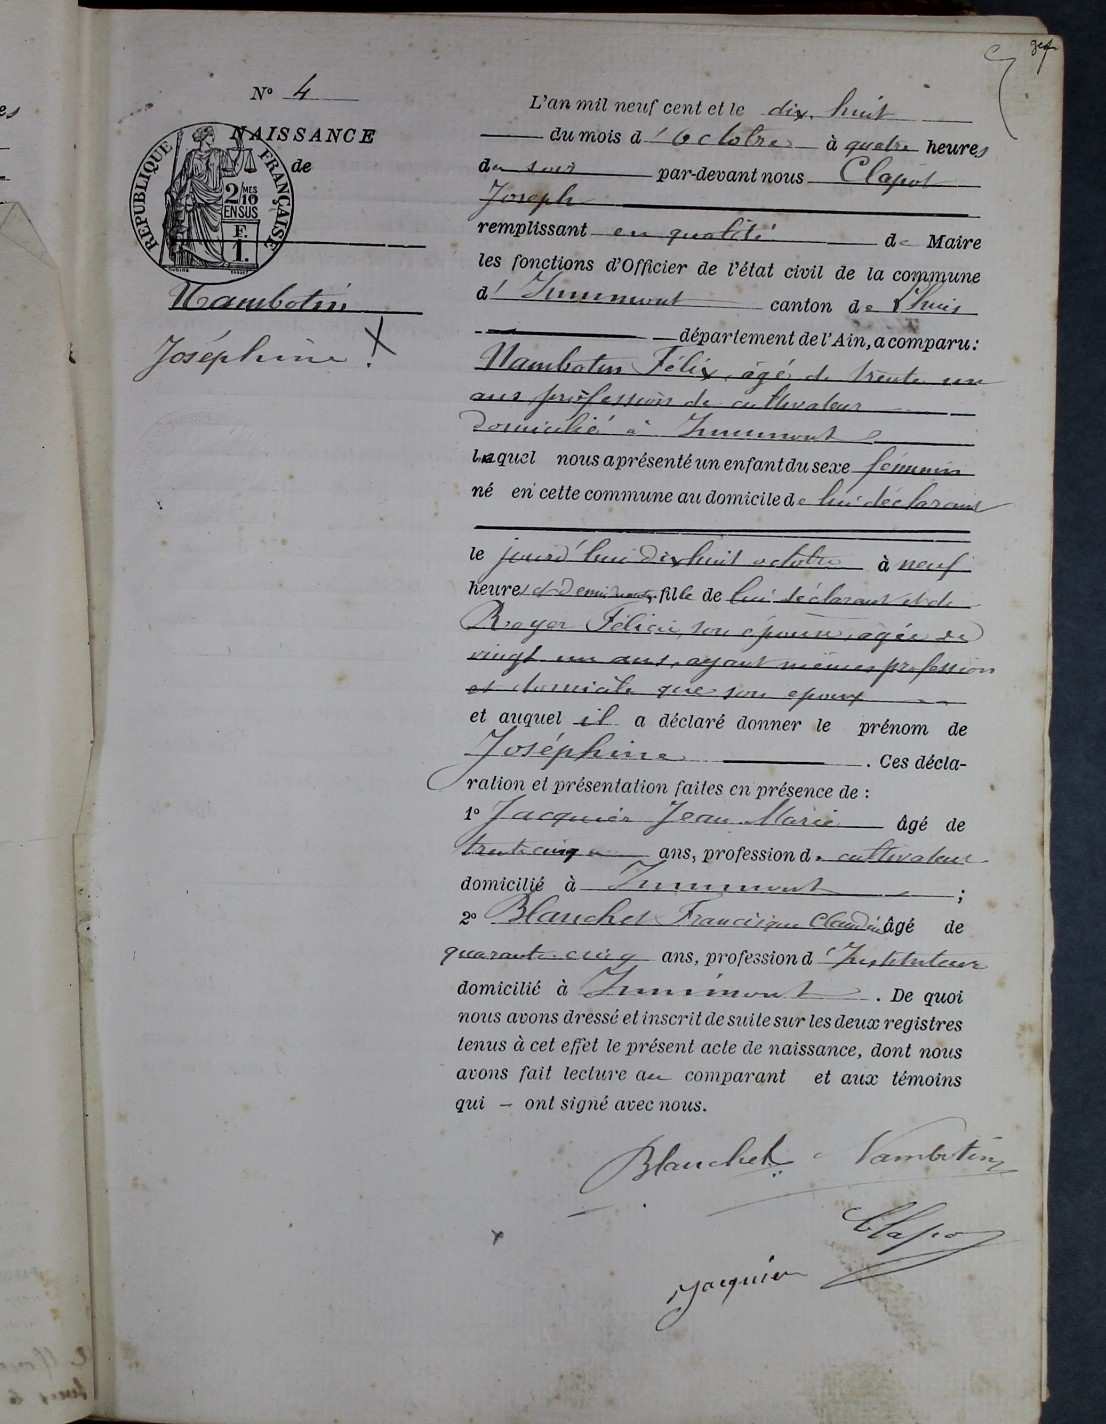 N° 4
NAISSANCE
de
RÉPUBLIQUE FRANÇAISE
2 MES
/10
EN SUS
F.
1.
Nambotin
Joséphine
L'an mil neuf cent et le dix huit
du mois d'octobre à quatre heures
du soir par-devant nous Clapot
Joseph
remplissant en qualité de Maire
les fonctions d'Officier de l'état civil de la commune
d'Innimont canton de Lhuis
département de l'Ain, a comparu:
Nambotin Félix, âgé de trente un
ans, profession de cultivateur
domicilié à Innimont
lequel nous a présenté un enfant du sexe féminin
né en cette commune au domicile de lui déclarant
le jourd'hui dix huit octobre à neuf
heures et demie fille de lui déclarant et de
Royer Félicie, son épouse, agée de
vingt un ans, ayant mêmes profession
et domicile que son epoux
et auquel il a déclaré donner le prénom de
Joséphine. Ces décla-
ration et présentation faites en présence de:
1° Jacquier Jean Marie âgé de
trente cinq ans, profession de cultivateur
domicilié à Innimont;
2° Blanchet Francisque Claudin âgé de
quarante cinq ans, profession d'Instituteur
domicilié à Innimont. De quoi
nous avons dressé et inscrit de suite sur les deux registres
tenus à cet effet le présent acte de naissance, dont nous
avons fait lecture au comparant et aux témoins
qui - ont signé avec nous.
Blanchet Nambotin
Clapot
Jacquier